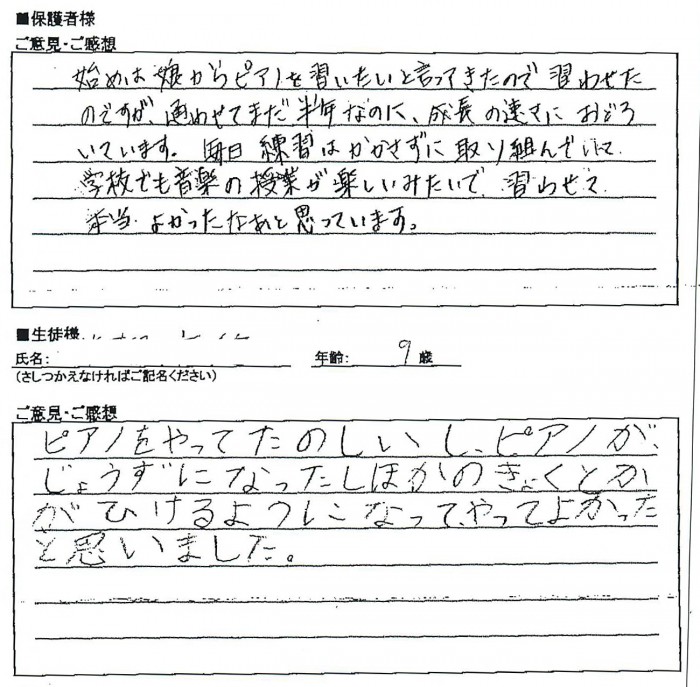 ■保護者様
ご意見・ご感想
始めは娘からピアノを習いたいと言ってきたので習わせた
のですが、通わせてまだ半年なのに、成長の速さにおどろ
いています。毎日練習はかかさずに取り組んでいて
学校でも音楽の授業が楽しいみたいで、習わせて
本当よかったなあと思っています。
■生徒様
氏名: 年齢: 9歳
(さしつかえなければご記名ください)
ご意見・ご感想
ピアノをやってたのしいし、ピアノが、
じょうずになったしほかのきょくとか
がひけるようになって、やってよかった
と思いました。